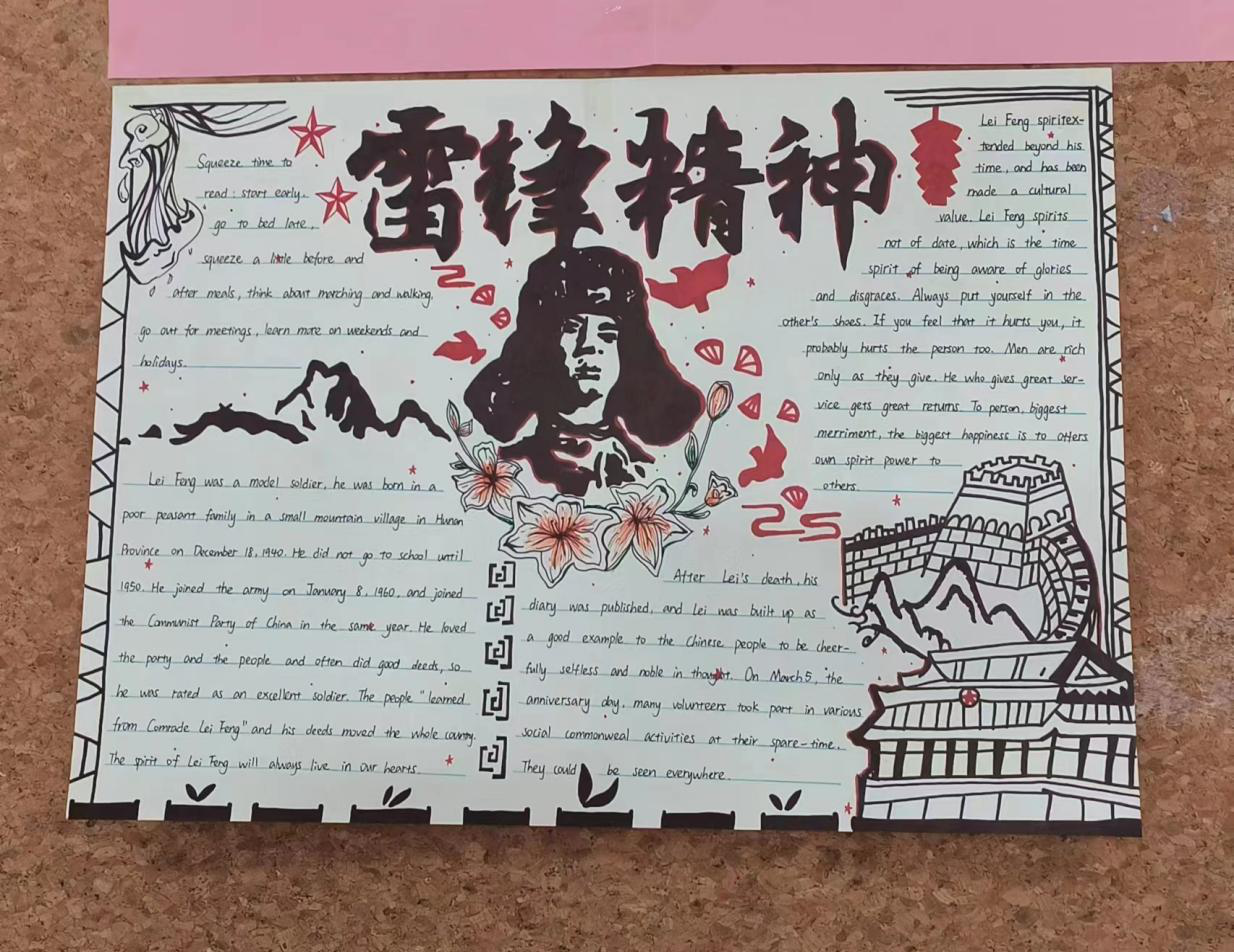 雷锋精神
Squeeze time to
read: start early.
go to bed late,
squeeze a little before and
after meals, think about marching and walking,
go out for meetings, learn more on weekends and
holidays.
Lei Feng was a model soldier, he was born in a
poor peasant family in a small mountain village in Hunan
Province on December 18, 1940. He did not go to school until
1950. He joined the army on January 8, 1960, and joined
the Communist Party of China in the same year. He loved
the party and the people and often did good deeds, so
he was rated as an excellent soldier. The people "learned
from Comrade Lei Feng" and his deeds moved the whole county.
The spirit of Lei Feng will always live in our hearts.
After Lei's death, his
diary was published, and Lei was built up as
a good example to the Chinese people to be cheer-
fully selfless and noble in thought. On March 5, the
anniversary day, many volunteers took part in various
social commonweal activities at their spare-time.
They could be seen everywhere.
Lei Feng spiritex-
tended beyond his
time, and has been
made a cultural
value. Lei Feng spirits
not of date, which is the time
spirit of being aware of glories
and disgraces. Always put yourself in the
other's shoes. If you feel that it hurts you, it
probably hurts the person too. Men are rich
only as they give. He who gives great ser-
vice gets great returns. To person, biggest
merriment, the biggest happiness is to others
own spirit power to
others.